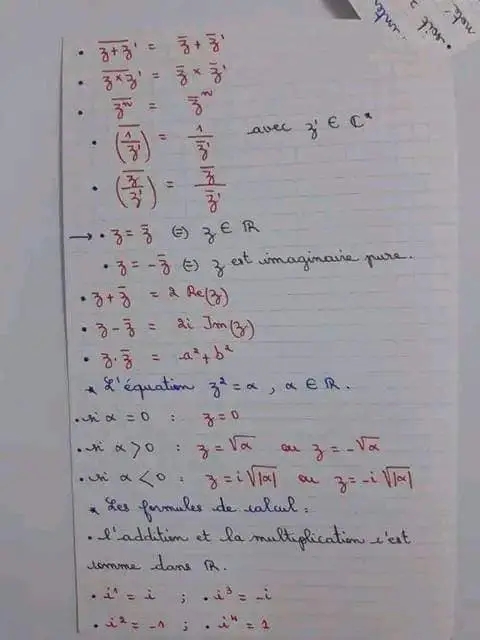 • \overline{z+z'} = z̄ + z̄'
• \overline{z×z'} = z̄ × z̄'
• \overline{z^n} = z̄^n
• \overline{(1/z')} = 1/z̄' avec z' ∈ ℂ*
• \overline{(z/z')} = z̄/z̄'
→ • z = z̄ (=) z ∈ ℝ
• z = -z̄ (=) z est imaginaire pure.
• z + z̄ = 2 Re(z)
• z - z̄ = 2i Im(z)
• z · z̄ = a² + b²
* L'équation z² = α , α ∈ ℝ.
• si α = 0 : z = 0
• si α > 0 : z = √α ou z = -√α
• si α < 0 : z = i√|α| ou z = -i√|α|
* Les formules de calcul :
• l'addition et la multiplication c'est
comme dans ℝ.
• i¹ = i ; • i³ = -i
• i² = -1 ; • i⁴ = 1